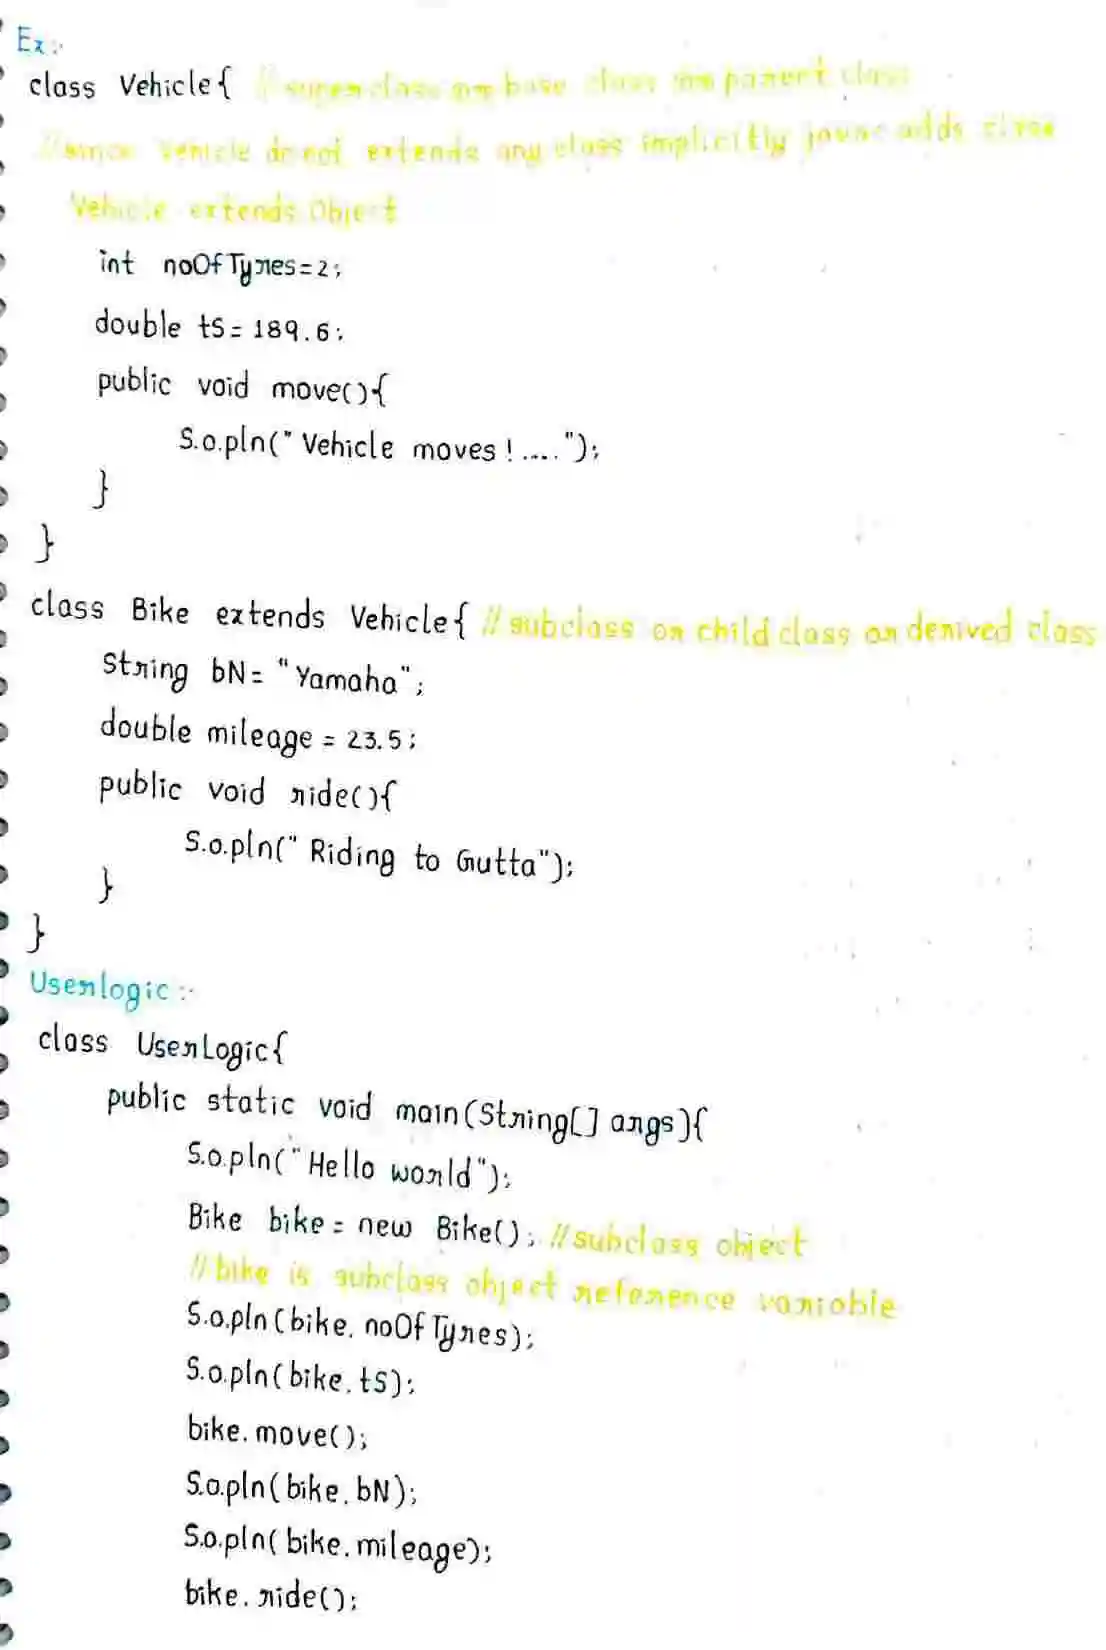 Ex:-
class Vehicle{ // superclass or base class or parent class
//since Vehicle do not extends any class implicitly javac adds class
Vehicle extends Object
int noOfTyres=2;
double tS= 189.6;
public void move(){
S.o.pln(" Vehicle moves !....");
}
}
class Bike extends Vehicle{ // subclass or child class or derived class
String bN= "Yamaha";
double mileage = 23.5;
public void ride(){
S.o.pln(" Riding to Gutta");
}
}
Userlogic :-
class UserLogic{
public static void main(String[] args){
S.o.pln("Hello world");
Bike bike = new Bike(); //subclass object
// bike is subclass object reference variable
S.o.pln(bike.noOfTyres);
S.o.pln(bike.tS);
bike.move();
S.o.pln(bike.bN);
S.o.pln(bike.mileage);
bike.ride();